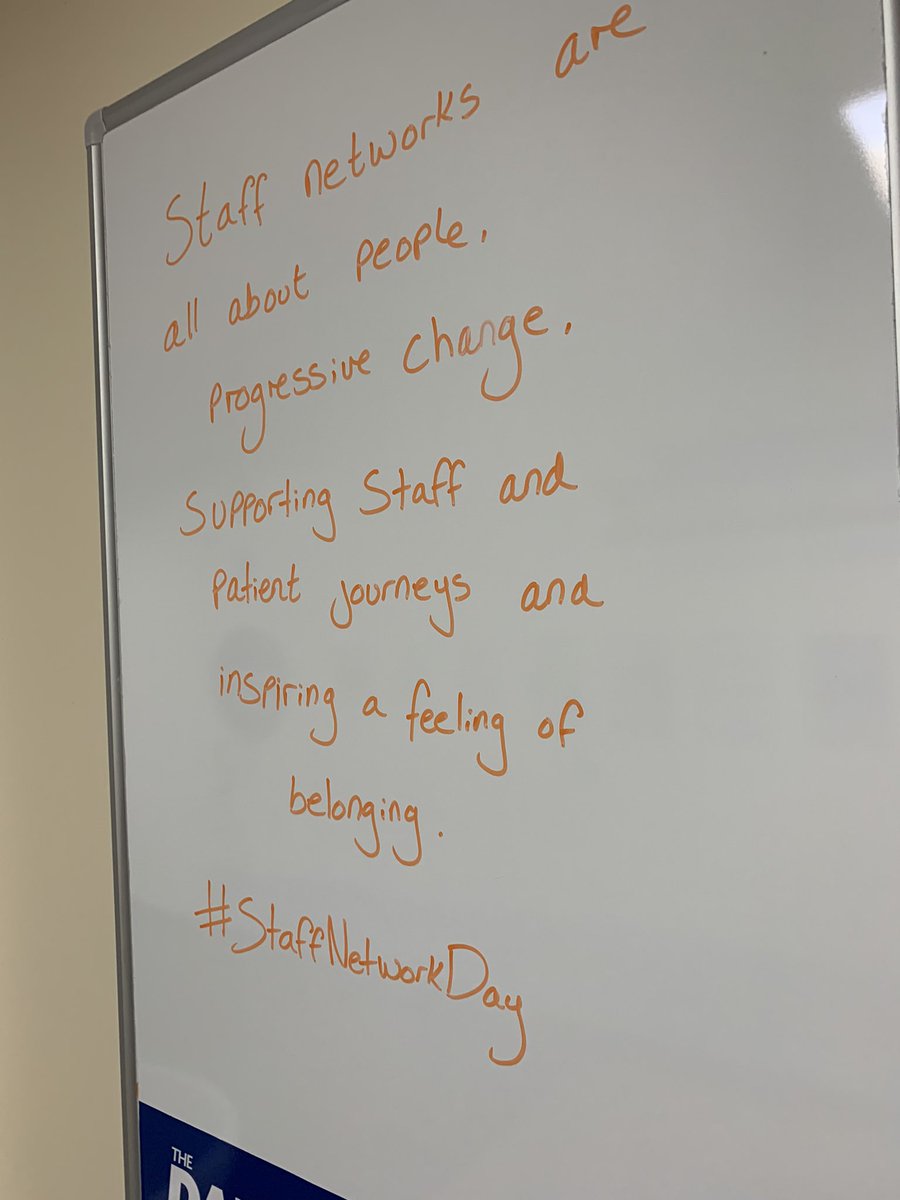 Staff networks are
all about people.
Progressive change.
Supporting Staff and
patient journeys and
inspiring a feeling of
belonging.
#StaffNetworkDay
THE